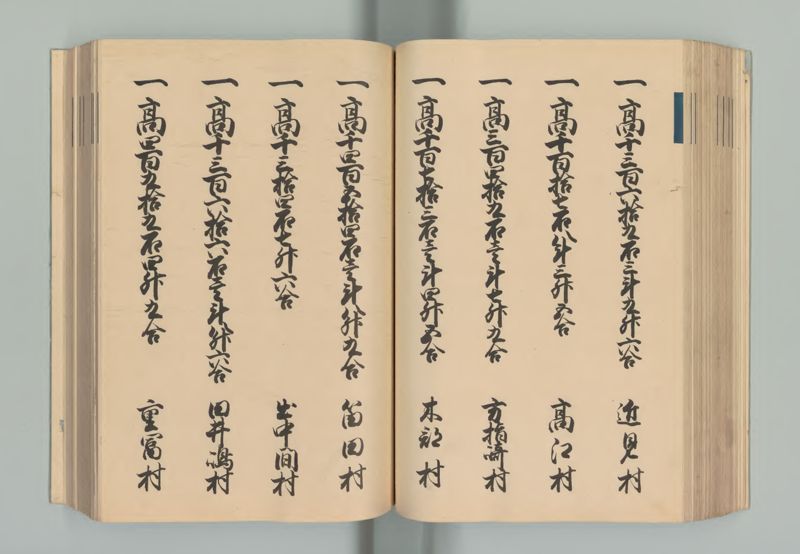 一高千三百六拾九石三斗九升六合 近見村
一高千百拾七石八斗三升五合 高江村
一高三百四拾九石壱斗七升九合 方指崎村
一高千百七拾三石壱斗四升五合 木部村
一高千四百五拾四石壱斗八升九合 笛田村
一高千三拾四石七升六合 出中間村
一高千三百六拾六石壱斗八升六合 田井嶋村
一高四百九拾九石四升九合 重冨村